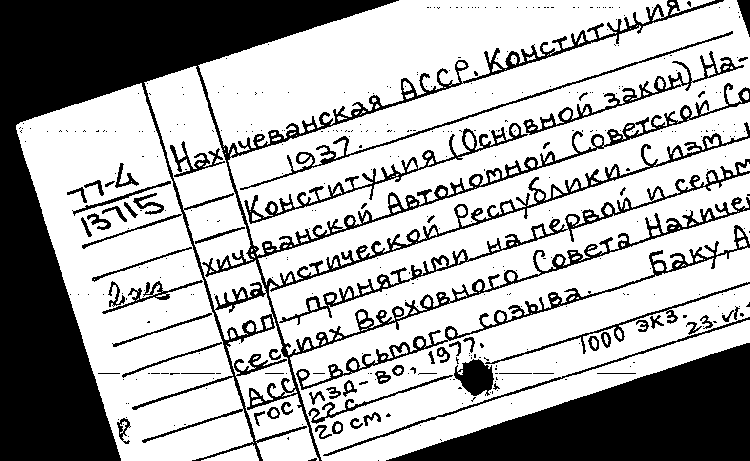 Нахичеванская АССР. Конституция.
1937.
77-4
13715
Конституция (Основной закон) На-
хичеванской Автономной Советской Со
циалистической Республики. С изм. и
доп., принятыми на первой и седьм
сессиях Верховного Совета Нахиче
АССР восьмого созыва. Баку, А
гос. изд-во, 1977.
22 с. 1000 экз. 23.
20 см.